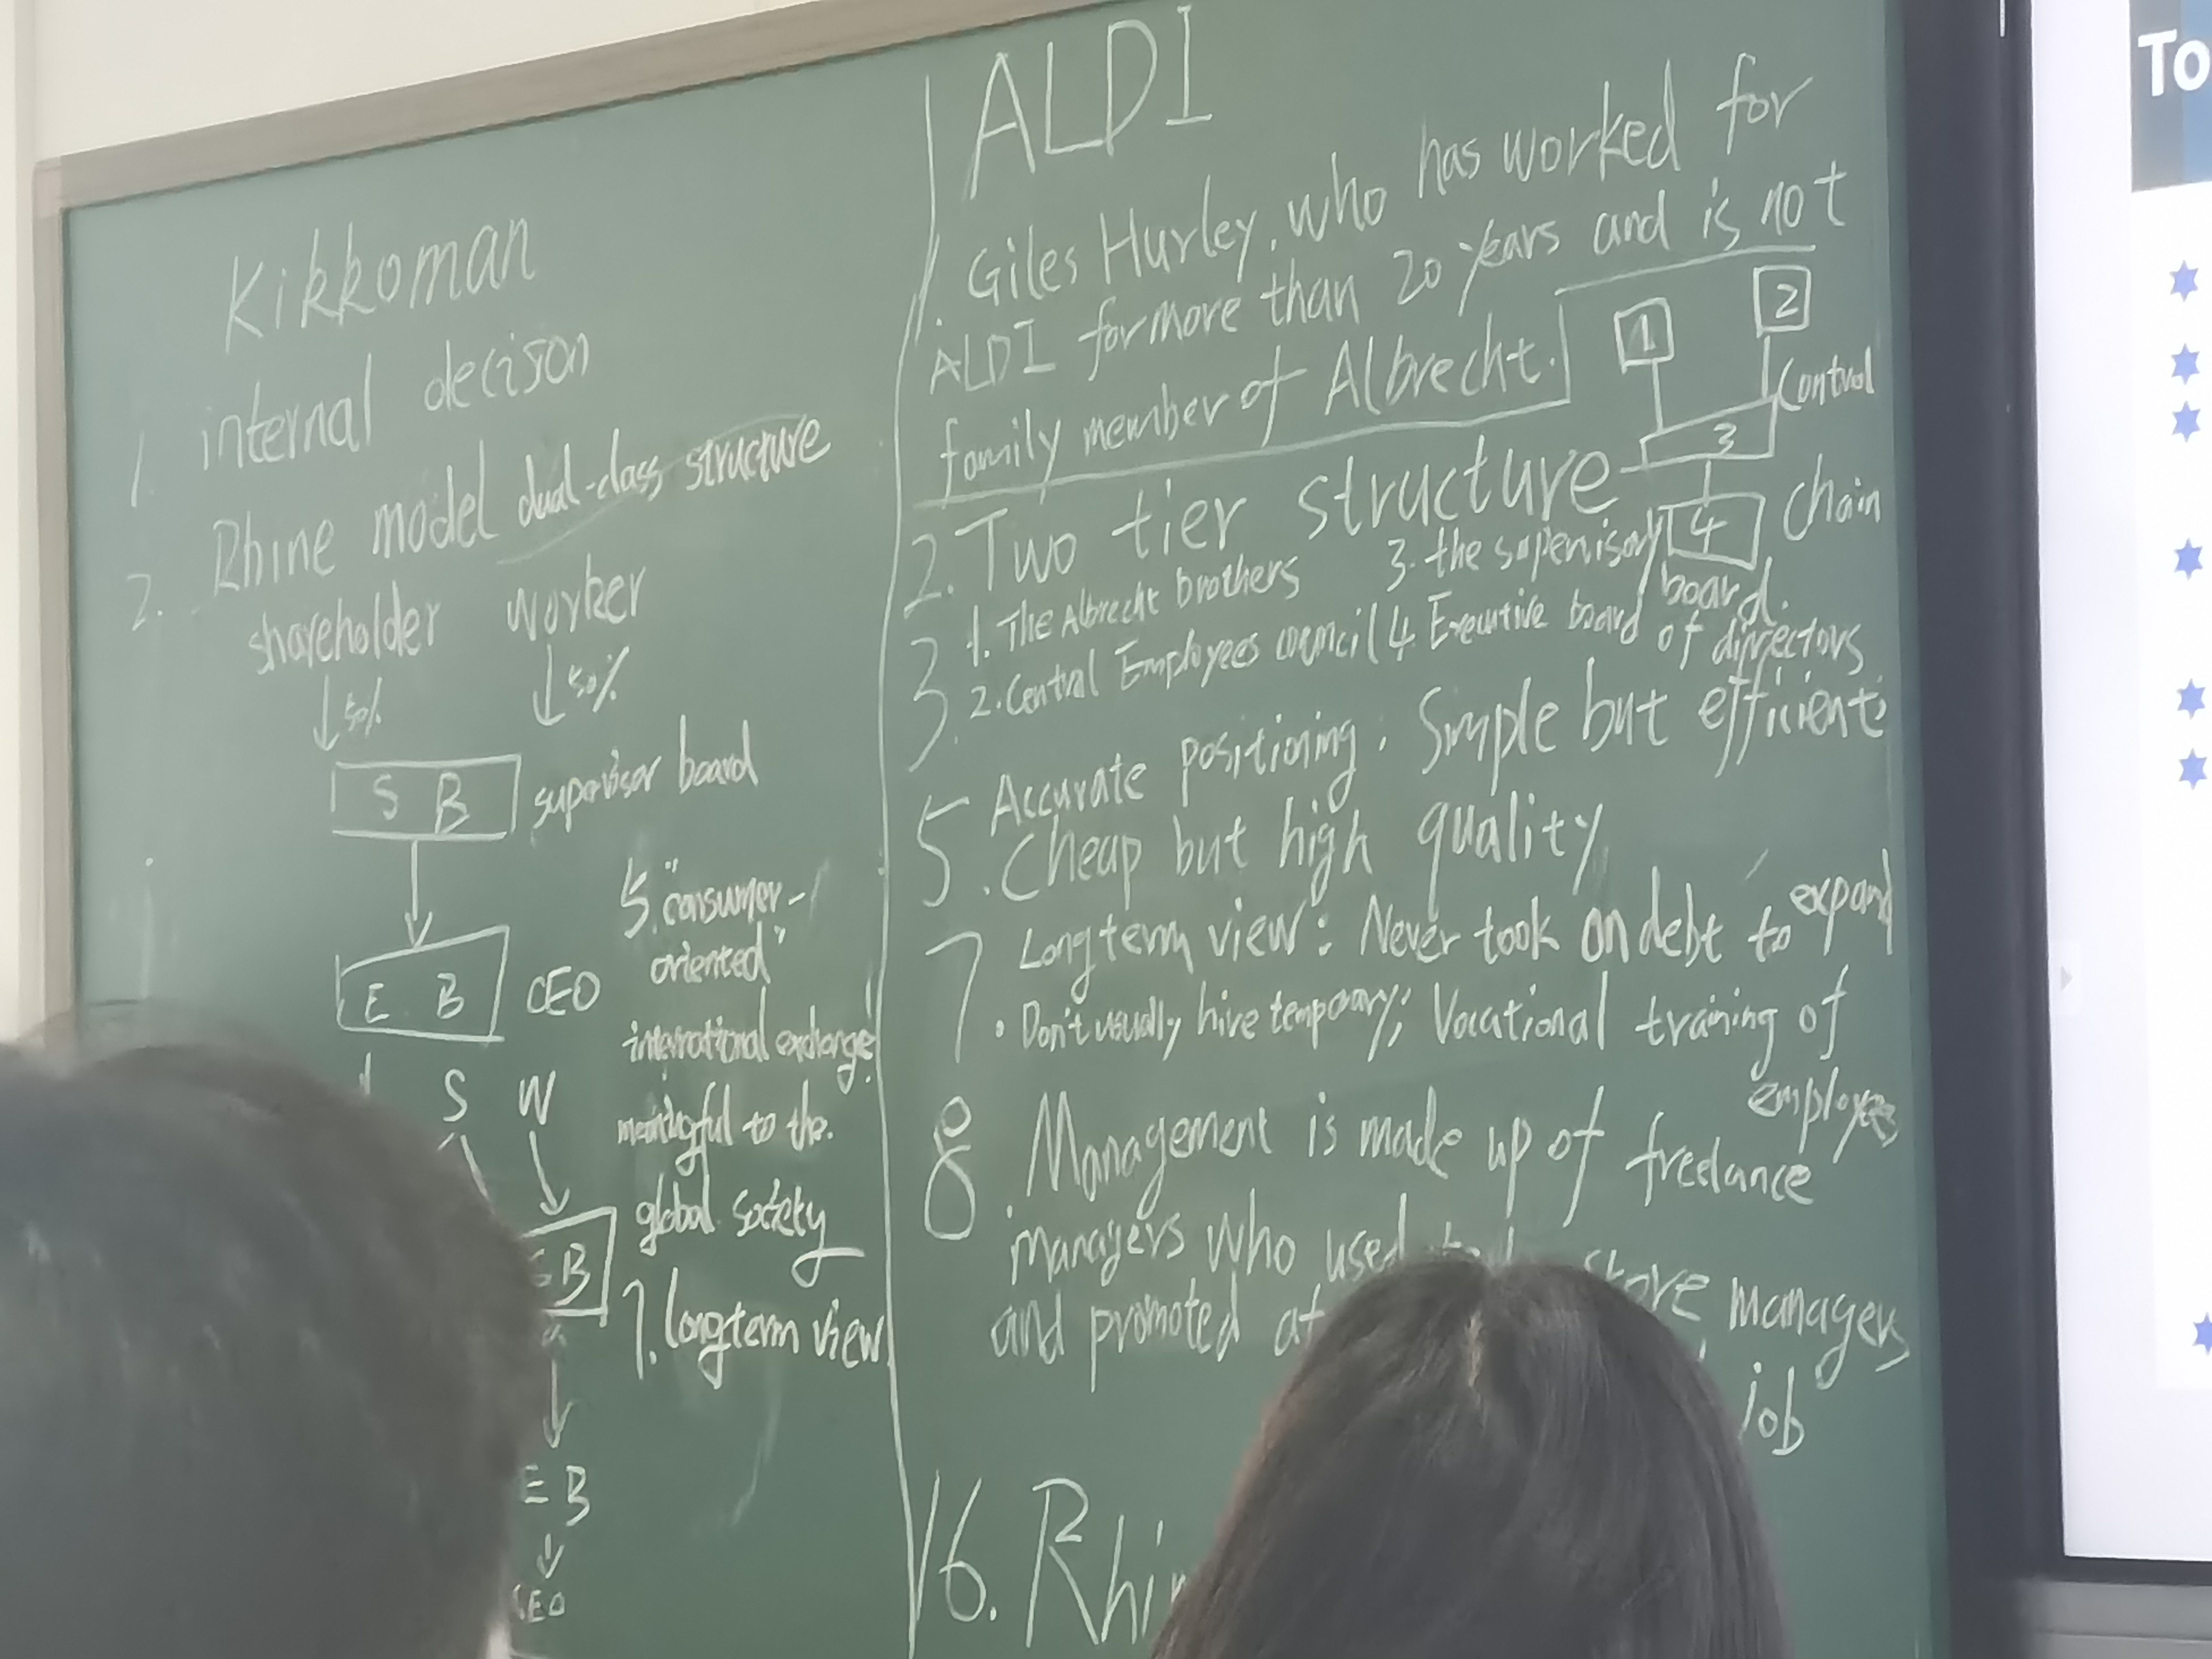 Kikkoman
1. internal decison
2. Rhine model dual-class structure
shareholder worker
50% 50%
S B supervisor board
E B CEO
S W
SB
E B
CEO
5. "consumer-
oriented"
international exchange!
meaningful to the
global society
7. longterm view
ALDI
1. Giles Hurley, who has worked for
ALDI for more than 20 years and is not
family member of Albrecht.
1 2
3 Control
4 Chain
2. Two tier structure
1. The Albrecht brothers 3. the supervisory board.
2. Central Employees council 4. Executive board of directors
3. Accurate positioning. Simple but efficient;
5. Cheap but high quality
7. Long term view: Never took on debt to expand
Don't usually hire temporary; Vocational training of
employees
8 Management is made up of freelance
managers who used store managers
and promoted at job
16. Rhin
To